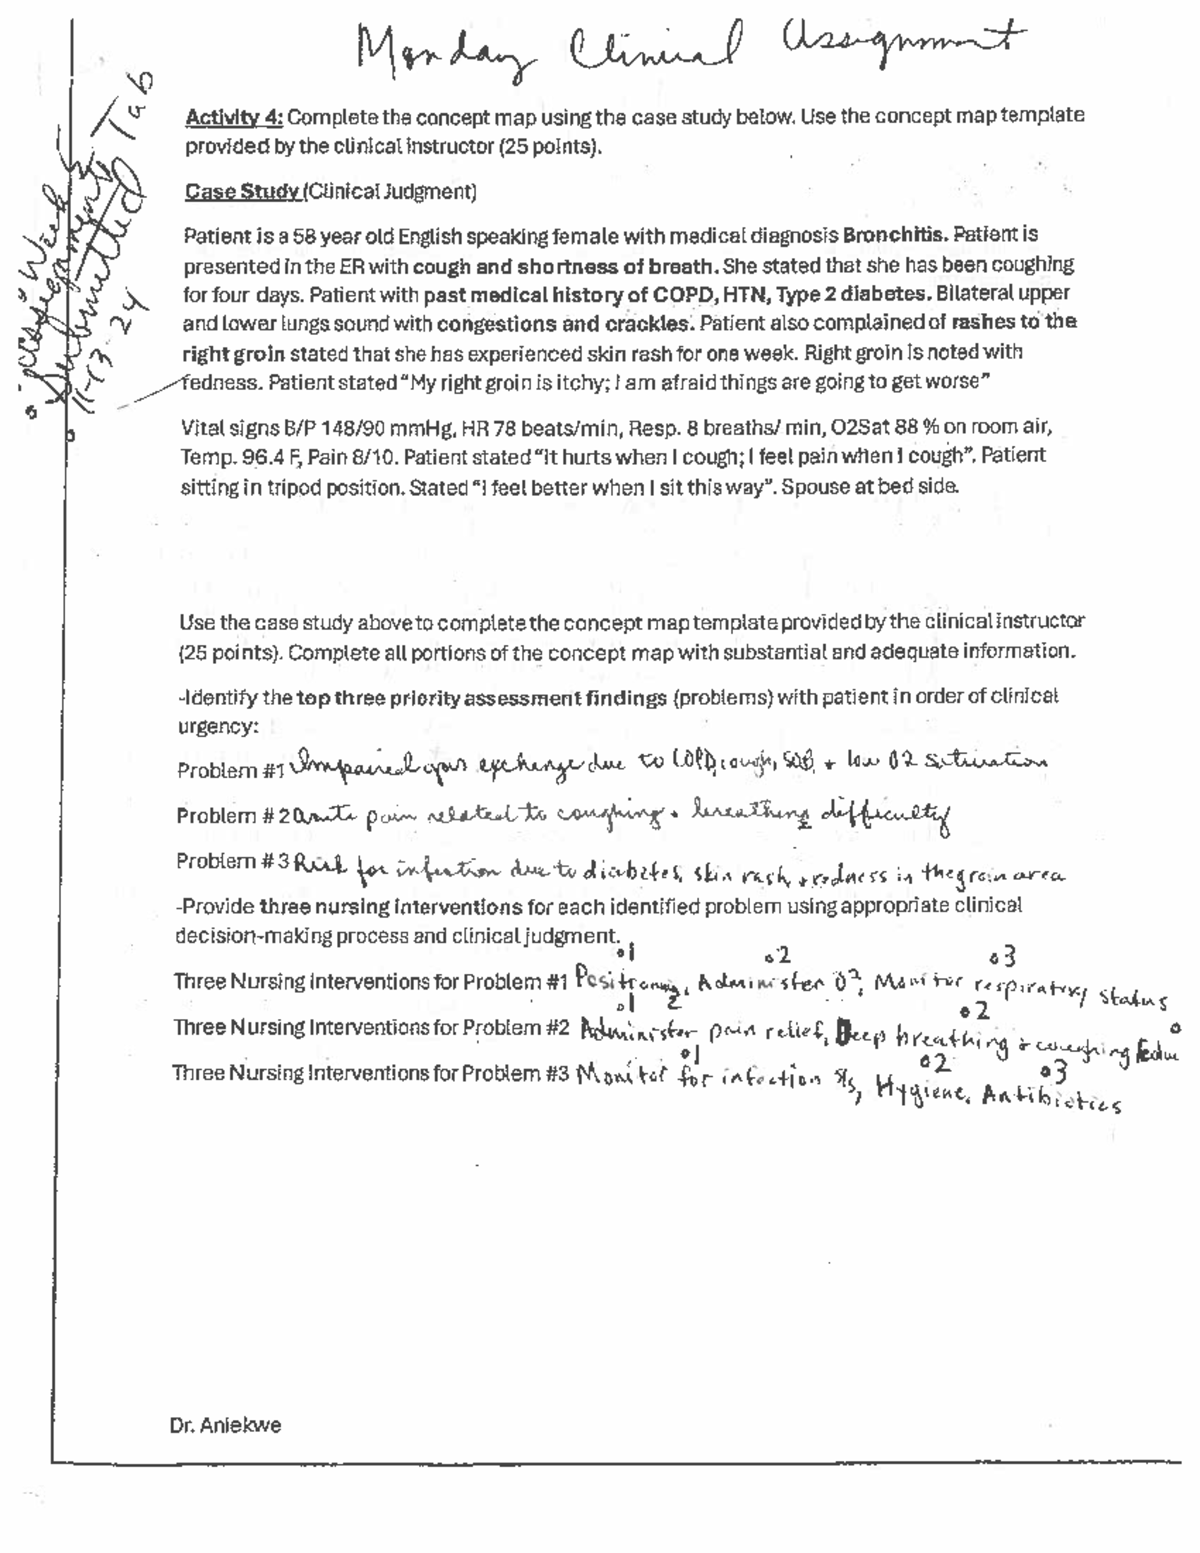 Monday Clinical Assignment
Week 5
Assignments Tab
Submitted
11-13-24
Activity 4: Complete the concept map using the case study below. Use the concept map template
provided by the clinical instructor (25 points).
Case Study (Clinical Judgment)
Patient is a 58 year old English speaking female with medical diagnosis Bronchitis. Patient is
presented in the ER with cough and shortness of breath. She stated that she has been coughing
for four days. Patient with past medical history of COPD, HTN, Type 2 diabetes. Bilateral upper
and lower lungs sound with congestions and crackles. Patient also complained of rashes to the
right groin stated that she has experienced skin rash for one week. Right groin is noted with
redness. Patient stated “My right groin is itchy; I am afraid things are going to get worse”
Vital signs B/P 148/90 mmHg, HR 78 beats/min, Resp. 8 breaths/ min, O2Sat 88 % on room air,
Temp. 96.4 F, Pain 8/10. Patient stated “It hurts when I cough; I feel pain when I cough”. Patient
sitting in tripod position. Stated “I feel better when I sit this way”. Spouse at bed side.
Use the case study above to complete the concept map template provided by the clinical instructor
(25 points). Complete all portions of the concept map with substantial and adequate information.
-Identify the top three priority assessment findings (problems) with patient in order of clinical
urgency:
Problem #1 Impaired gas exchange due to COPD, cough, SOB, + low O2 saturation
Problem # 2 Acute pain related to coughing + breathing difficulty
Problem # 3 Risk for infection due to diabetes, skin rash, + redness in the groin area
-Provide three nursing interventions for each identified problem using appropriate clinical
decision-making process and clinical judgment.
1 2 3
Three Nursing Interventions for Problem #1 Positioning, Administer O2, Monitor respiratory status
1 2
Three Nursing Interventions for Problem #2 Administer pain relief, Deep breathing + coughing
1 2 3
Three Nursing Interventions for Problem #3 Monitor for infection s/s, Hygiene, Antibiotics
Dr. Aniekwe